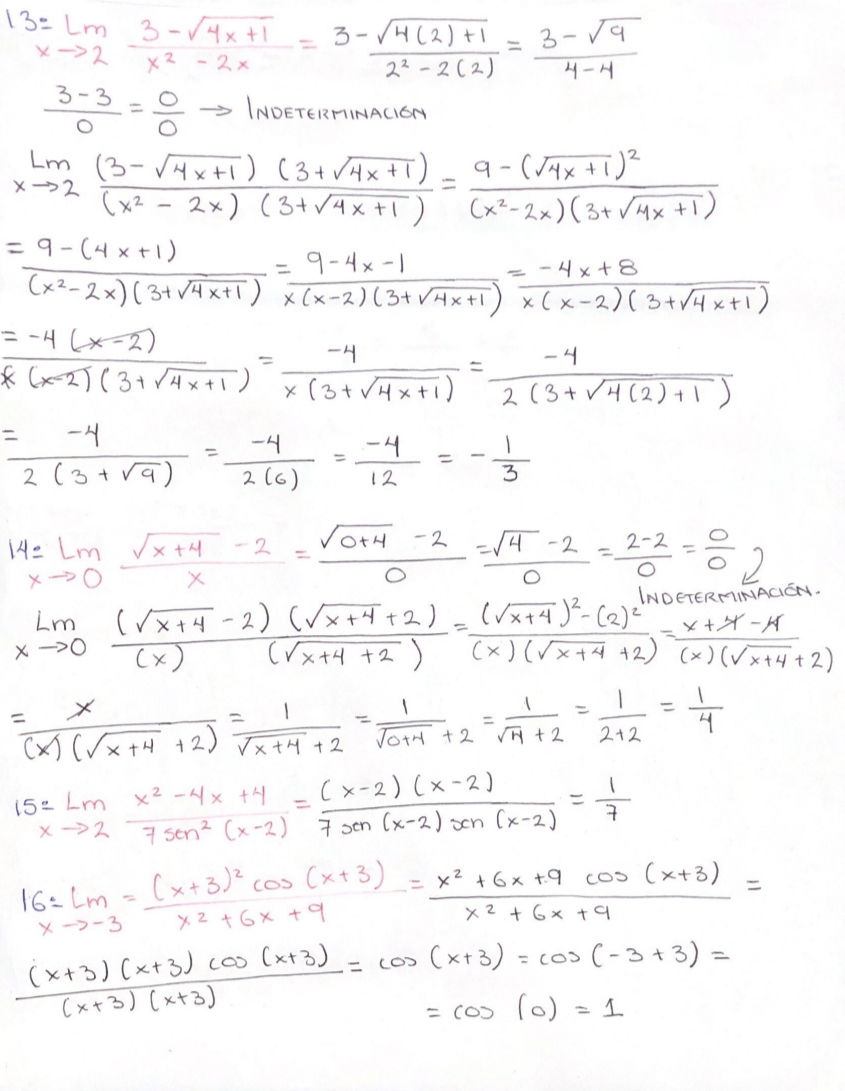 13= Lm x→2 (3-√(4x+1))/(x² - 2x) = (3-√(4(2)+1))/(2²-2(2)) = (3-√9)/(4-4)
(3-3)/0 = 0/0 → INDETERMINACIÓN
Lm x→2 ((3-√(4x+1)) (3+√(4x+1)))/((x² - 2x) (3+√(4x+1))) = (9-(√(4x+1))²)/((x²-2x)(3+√(4x+1)))
= (9-(4x+1))/((x²-2x)(3+√(4x+1))) = (9-4x-1)/(x(x-2)(3+√(4x+1))) = (-4x+8)/(x(x-2)(3+√(4x+1)))
= (-4(x-2))/(x(x-2)(3+√(4x+1))) = (-4)/(x(3+√(4x+1))) = (-4)/(2(3+√(4(2)+1)))
= (-4)/(2(3+√9)) = (-4)/(2(6)) = (-4)/12 = - 1/3
14= Lm x→0 (√(x+4) -2)/x = (√(0+4) -2)/0 = (√4 -2)/0 = (2-2)/0 = 0/0
INDETERMINACIÓN.
Lm x→0 ((√(x+4) -2)(√(x+4)+2))/((x) (√(x+4 +2))) = ((√(x+4))²-(2)²)/((x)(√(x+4) +2)) = (x+4-4)/((x)(√(x+4)+2))
= x/((x)(√(x+4) +2)) = 1/(√(x+4) +2) = 1/(√(0+4) +2) = 1/(√4 +2) = 1/(2+2) = 1/4
15= Lm x→2 (x² -4x +4)/(7 sen² (x-2)) = ((x-2)(x-2))/(7 sen (x-2) sen (x-2)) = 1/7
16= Lm x→-3 = ((x+3)² cos (x+3))/(x² +6x +9) = (x² +6x +9 cos (x+3))/(x² +6x +9) =
((x+3)(x+3) cos (x+3))/((x+3)(x+3)) = cos (x+3) = cos (-3+3) =
= cos (0) = 1